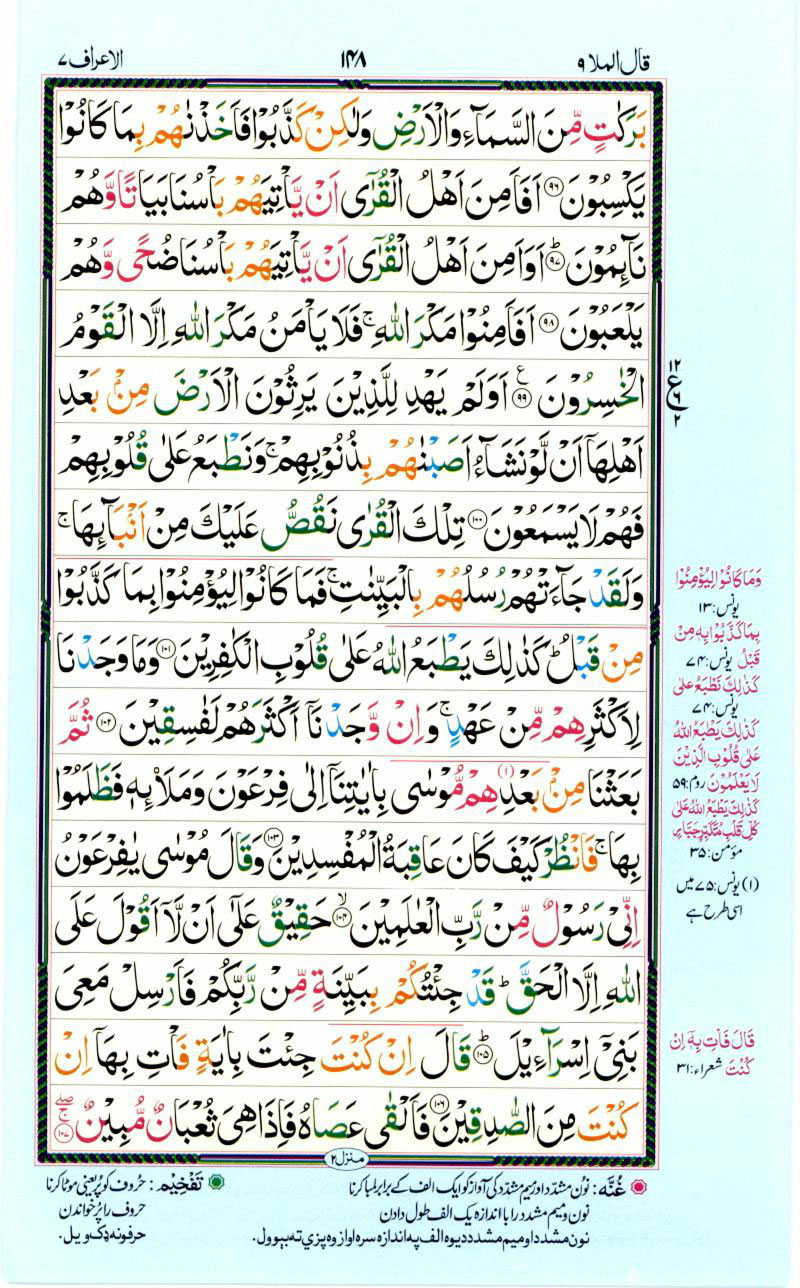 قال الملا ٩
١٤٨
الاعراف ٧
بَرَكٰتٍ مِّنَ السَّمَآءِ وَالْاَرْضِ وَلٰكِنْ كَذَّبُوْا فَاَخَذْنٰهُمْ بِمَا كَانُوْا
يَكْسِبُوْنَ ﴿٩٦﴾ اَفَاَمِنَ اَهْلُ الْقُرٰٓى اَنْ يَّاْتِيَهُمْ بَاْسُنَا بَيَاتًا وَّهُمْ
نَآئِمُوْنَ ؕ﴿٩٧﴾ اَوَاَمِنَ اَهْلُ الْقُرٰٓى اَنْ يَّاْتِيَهُمْ بَاْسُنَا ضُحًى وَّهُمْ
يَلْعَبُوْنَ ﴿٩٨﴾ اَفَاَمِنُوْا مَكْرَ اللّٰهِ ۚ فَلَا يَاْمَنُ مَكْرَ اللّٰهِ اِلَّا الْقَوْمُ
الْخٰسِرُوْنَ ﴿٩٩﴾ اَوَلَمْ يَهْدِ لِلَّذِيْنَ يَرِثُوْنَ الْاَرْضَ مِنْۢ بَعْدِ
اَهْلِهَاۤ اَنْ لَّوْ نَشَآءُ اَصَبْنٰهُمْ بِذُنُوْبِهِمْ ۚ وَنَطْبَعُ عَلٰى قُلُوْبِهِمْ
فَهُمْ لَا يَسْمَعُوْنَ ﴿١٠٠﴾ تِلْكَ الْقُرٰى نَقُصُّ عَلَيْكَ مِنْ اَنْۢبَآئِهَا ۚ
وَلَقَدْ جَآءَتْهُمْ رُسُلُهُمْ بِالْبَيِّنٰتِ ۚ فَمَا كَانُوْا لِيُؤْمِنُوْا بِمَا كَذَّبُوْا
مِنْ قَبْلُ ؕ كَذٰلِكَ يَطْبَعُ اللّٰهُ عَلٰى قُلُوْبِ الْكٰفِرِيْنَ ﴿١٠١﴾ وَمَا وَجَدْنَا
لِاَكْثَرِهِمْ مِّنْ عَهْدٍ ۚ وَاِنْ وَّجَدْنَاۤ اَكْثَرَهُمْ لَفٰسِقِيْنَ ﴿١٠٢﴾ ثُمَّ
بَعَثْنَا مِنْۢ بَعْدِهِمْ (١) مُّوْسٰى بِاٰيٰتِنَاۤ اِلٰى فِرْعَوْنَ وَمَلَا۟ئِهٖ فَظَلَمُوْا
بِهَا ۚ فَانْظُرْ كَيْفَ كَانَ عَاقِبَةُ الْمُفْسِدِيْنَ ﴿١٠٣﴾ وَقَالَ مُوْسٰى يٰفِرْعَوْنُ
اِنِّىْ رَسُوْلٌ مِّنْ رَّبِّ الْعٰلَمِيْنَ ۙ﴿١٠٤﴾ حَقِيْقٌ عَلٰٓى اَنْ لَّاۤ اَقُوْلَ عَلَى
اللّٰهِ اِلَّا الْحَقَّ ؕ قَدْ جِئْتُكُمْ بِبَيِّنَةٍ مِّنْ رَّبِّكُمْ فَاَرْسِلْ مَعِىَ
بَنِىْۤ اِسْرَآءِيْلَ ؕ﴿١٠٥﴾ قَالَ اِنْ كُنْتَ جِئْتَ بِاٰيَةٍ فَاْتِ بِهَاۤ اِنْ
كُنْتَ مِنَ الصّٰدِقِيْنَ ﴿١٠٦﴾ فَاَلْقٰى عَصَاهُ فَاِذَا هِىَ ثُعْبَانٌ مُّبِيْنٌ ﴿١٠٧﴾
١٢
ع
٦
٢
وَمَا كَانُوْا لِيُؤْمِنُوْا
یونس:١٣
بِمَا كَذَّبُوْا بِهٖ مِنْ
قَبْلُ یونس:٧٤
كَذٰلِكَ نَطْبَعُ عَلٰى
یونس:٧٤
كَذٰلِكَ يَطْبَعُ اللّٰهُ
عَلٰى قُلُوْبِ الَّذِيْنَ
لَا يَعْلَمُوْنَ روم:٥٩
كَذٰلِكَ يَطْبَعُ اللّٰهُ عَلٰى
كُلِّ قَلْبِ مُتَكَبِّرٍ جَبَّارٍ
مؤمن:٣٥
(١) یونس:٧٥ میں
اسی طرح ہے
قَالَ فَاْتِ بِهٖۤ اِنْ
كُنْتَ شعراء:٣١
منزل ٢
غُنَّه: نون مشدد اور میم مشدد کی آواز کو ایک الف کے برابر لمبا کرنا
نون و میم مشدد را با اندازہ یک الف طول دادن
نون مشدد او میم مشدد دیوه الف په اندازه سره اواز وه پزي ته بېوول.
تَفْخِيْم: حروف کو پُر یعنی موٹا کرنا
حروف را پُر خواندن
حرفونه ډک ویل.